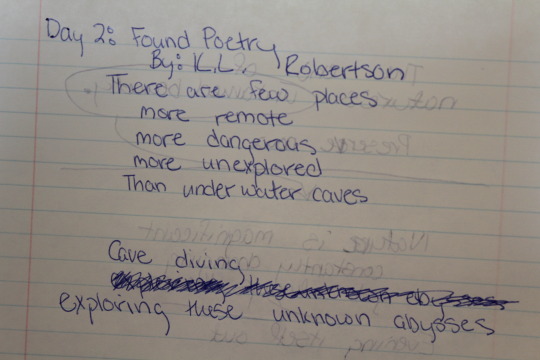 Day 2: Found Poetry
By: K.L. Robertson
There are few places
more remote
more dangerous
more unexplored
Than underwater caves
Cave diving
exploring these unknown abysses